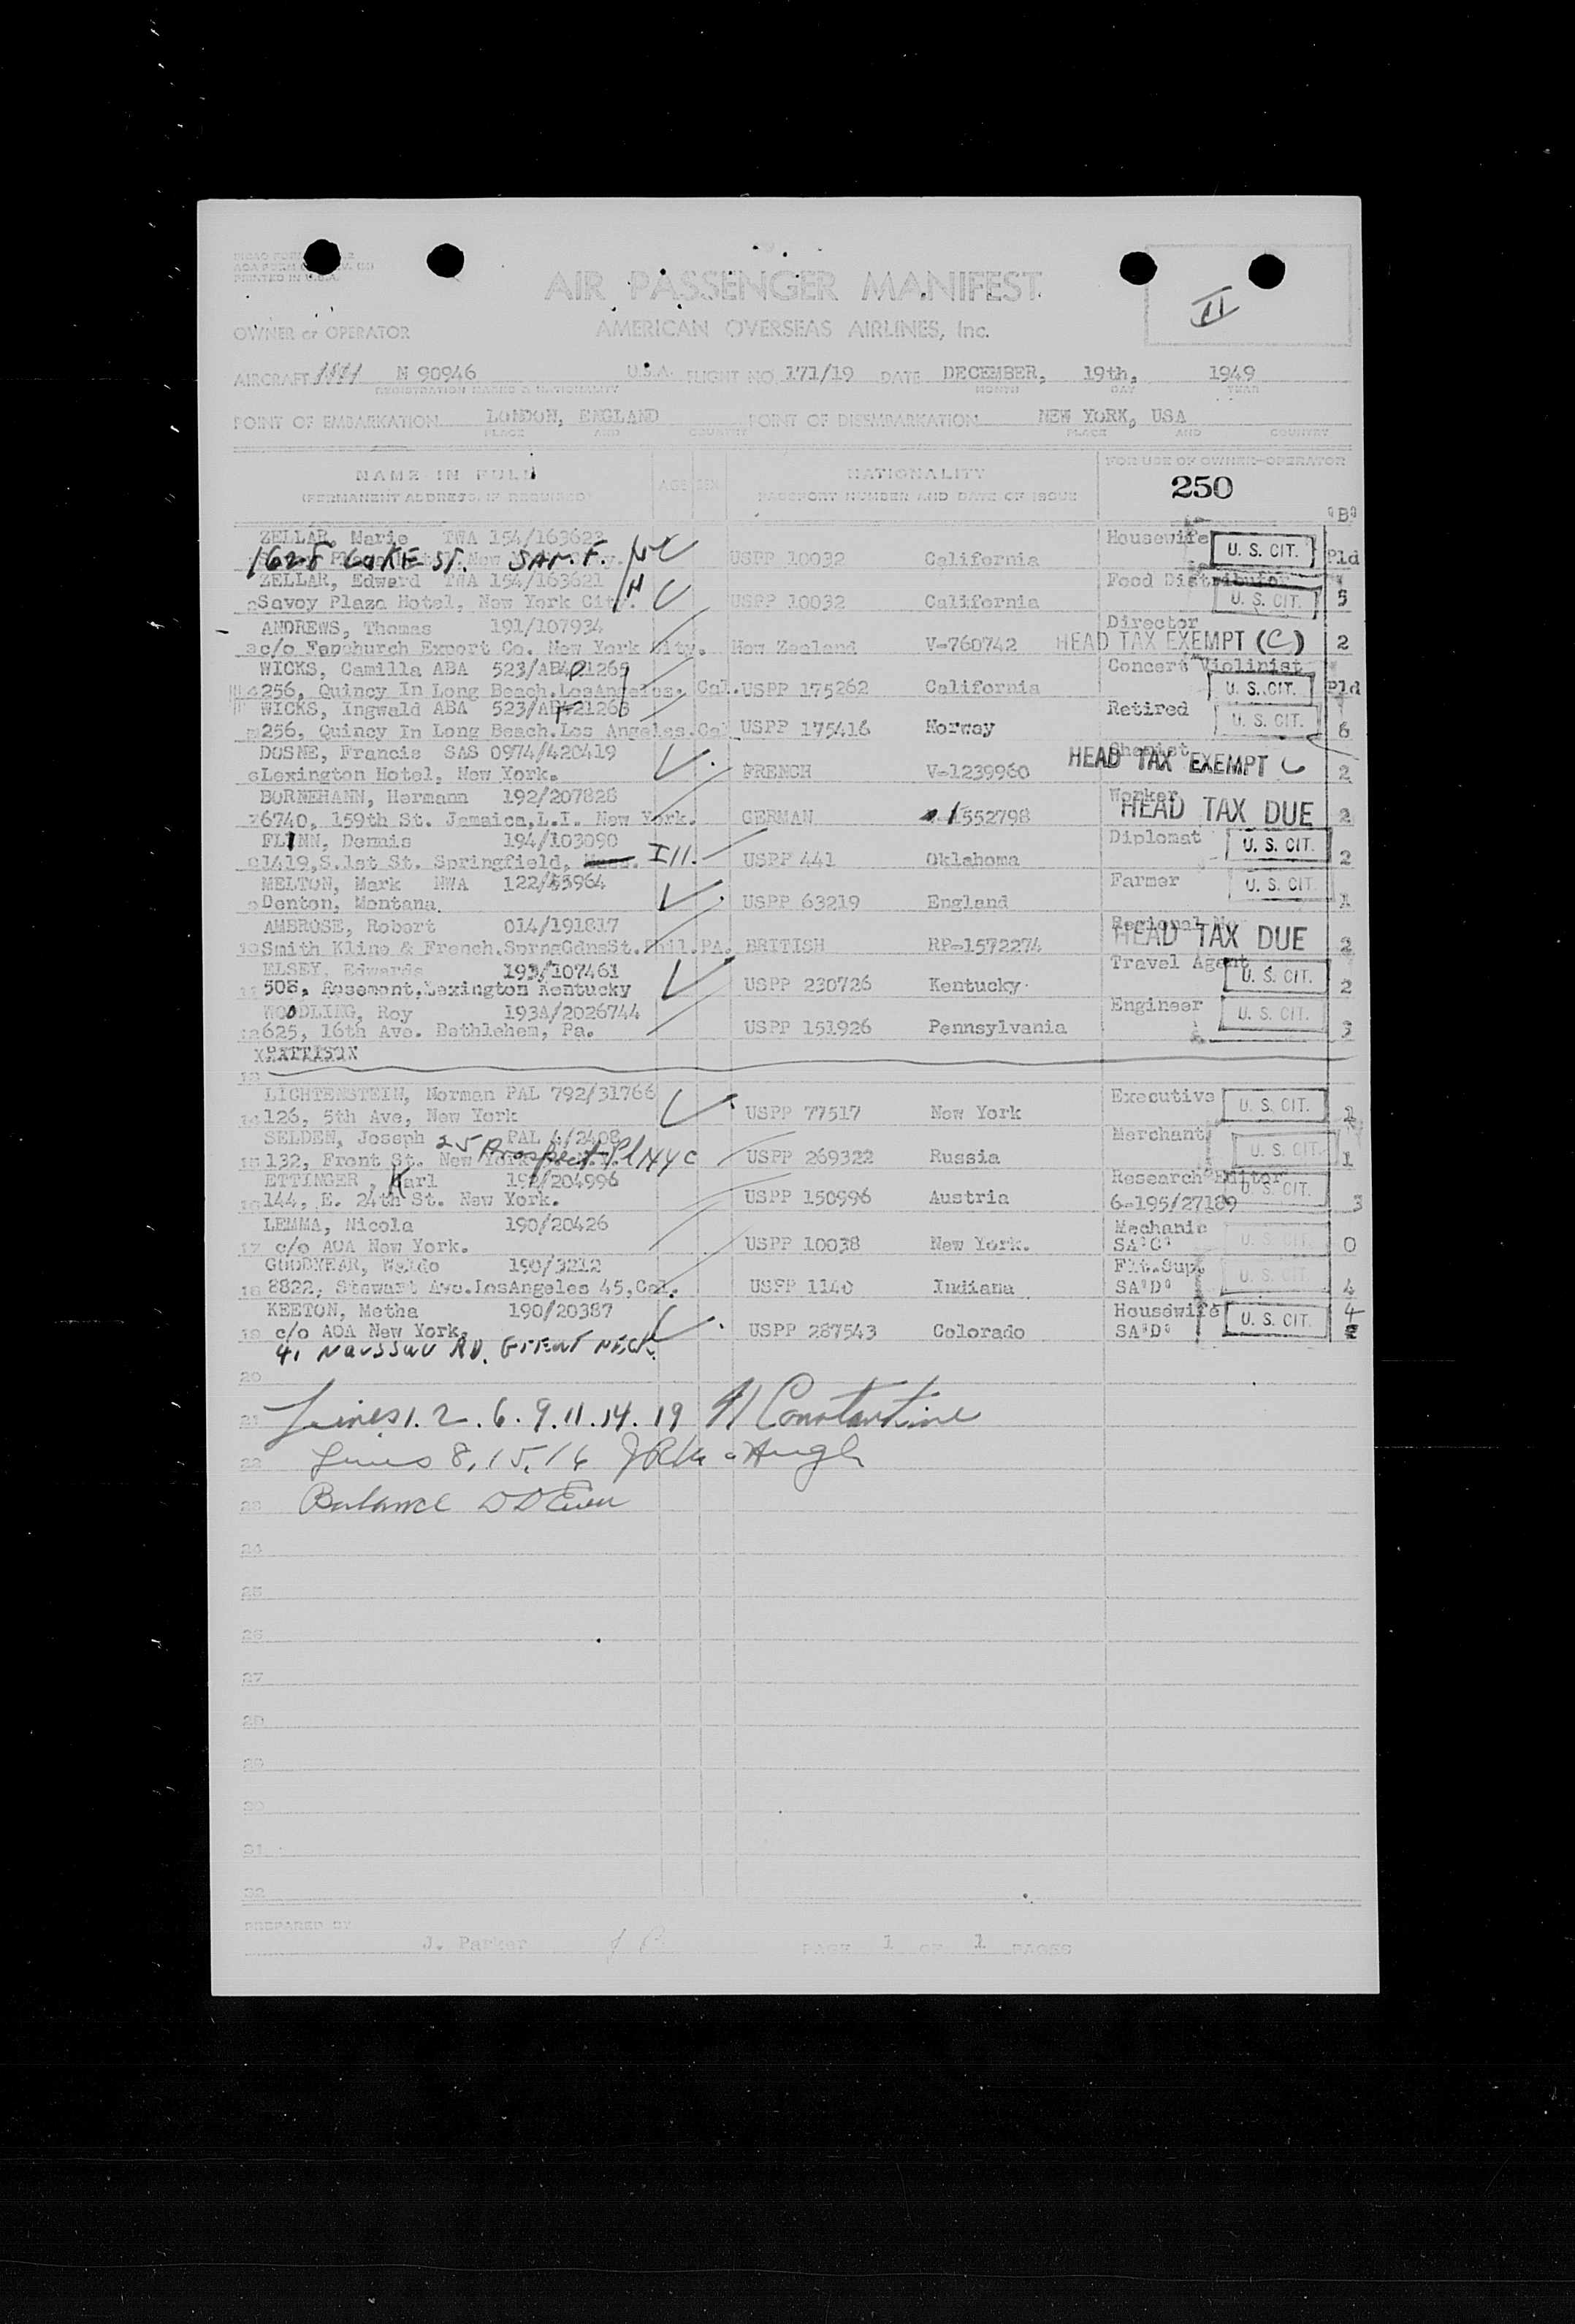 PRINTED IN U.S.A.
II
AIR PASSENGER MANIFEST
OWNER or OPERATOR AMERICAN OVERSEAS AIRLINES, Inc.
AIRCRAFT N 90946 U.S.A. FLIGHT NO. 171/19 DATE DECEMBER, 19th, 1949
REGISTRATION MARKS & NATIONALITY MONTH DAY YEAR
POINT OF EMBARKATION LONDON, ENGLAND POINT OF DISEMBARKATION NEW YORK, USA
PLACE AND COUNTRY PLACE AND COUNTRY
NAME IN FULL AGE SEX NATIONALITY FOR USE OF OWNER-OPERATOR
(PERMANENT ADDRESS, IF REQUIRED) PASSPORT NUMBER AND DATE OF ISSUE 250
"B"
ZELLAR, Marie TWA 154/163623 Housewife
1628 LAKE ST. SAN. F. USPP 10032 California U. S. CIT. Pld
ZELLAR, Edward TWA 154/163621 Food Distributor
2 Savoy Plaza Hotel, New York City. USPP 10032 California U. S. CIT. 5
ANDREWS, Thomas 191/107934 Director
3 c/o Fenchurch Export Co. New York City. New Zealand V-760742 HEAD TAX EXEMPT (C) 2
WICKS, Camilla ABA 523/AB 21265 Concert Violinist
4 256, Quincy In Long Beach. LosAngeles. Cal. USPP 175262 California U. S. CIT. Pld
WICKS, Ingwald ABA 523/AB 21263 Retired
256, Quincy In Long Beach. Los Angeles. Cal USPP 175416 Norway U. S. CIT. 6
DOSNE, Francis SAS 0974/420419 Chemist
6 Lexington Hotel, New York. FRENCH V-1239960 HEAD TAX EXEMPT C 2
BORNEHANN, Hermann 192/207828 Worker
7 6740, 159th St. Jamaica, L.I. New York. GERMAN 1552798 HEAD TAX DUE 2
FLINN, Dennis 194/103090 Diplomat
1419, S. 1st St. Springfield, Ill. USPP 441 Oklahoma U. S. CIT. 2
MELTON, Mark NWA 122/55964 Farmer
9 Denton, Montana. USPP 63219 England U. S. CIT. 1
AMBROSE, Robert 014/191817 Regional
10 Smith Kline & French. SprngGdnsSt. Phil. PA. BRITISH RP-1572274 HEAD TAX DUE 2
ELSEY, Edwards 193/107461 Travel Agent
11 508, Rosemont. Lexington Kentucky USPP 230726 Kentucky U. S. CIT. 2
WOODLING, Roy 193A/2026744 Engineer
12 625, 16th Ave. Bethlehem, Pa. USPP 151926 Pennsylvania U. S. CIT. 3
PATTISON
13
LICHTENSTEIN, Norman PAL 792/31766 Executive
14 126, 5th Ave, New York USPP 77517 New York U. S. CIT. 1
SELDEN, Joseph PAL 4/2408 Merchant
25 Prospect Pl NYC
15 132, Front St. New York USPP 269322 Russia U. S. CIT. 1
ETTINGER, Karl 192/204996 Research Editor
16 144, E. 24th St. New York. USPP 150996 Austria 6-195/27189 U. S. CIT. 3
LEMMA, Nicola 190/20426 Mechanic
17 c/o AOA New York. USPP 10038 New York. SA"C" U. S. CIT. 0
GOODYEAR, Waldo 190/3212 Flt. Sup.
18 8822, Stewart Ave. LosAngeles 45, Cal. USPP 1140 Indiana SA"D" U. S. CIT. 4
KEETON, Metha 190/20387 Housewife 4
19 c/o AOA New York. USPP 287543 Colorado SA"D" U. S. CIT.
41 NASSAU RD. GREAT NECK.
20
21 Lines 1. 2. 6. 9. 11. 14. 19 Constantine
22 Lines 8, 15, 16
23 Balance
24
25
26
27
28
29
30
31
32
PREPARED BY
J. Parker PAGE 1 OF 1 PAGES